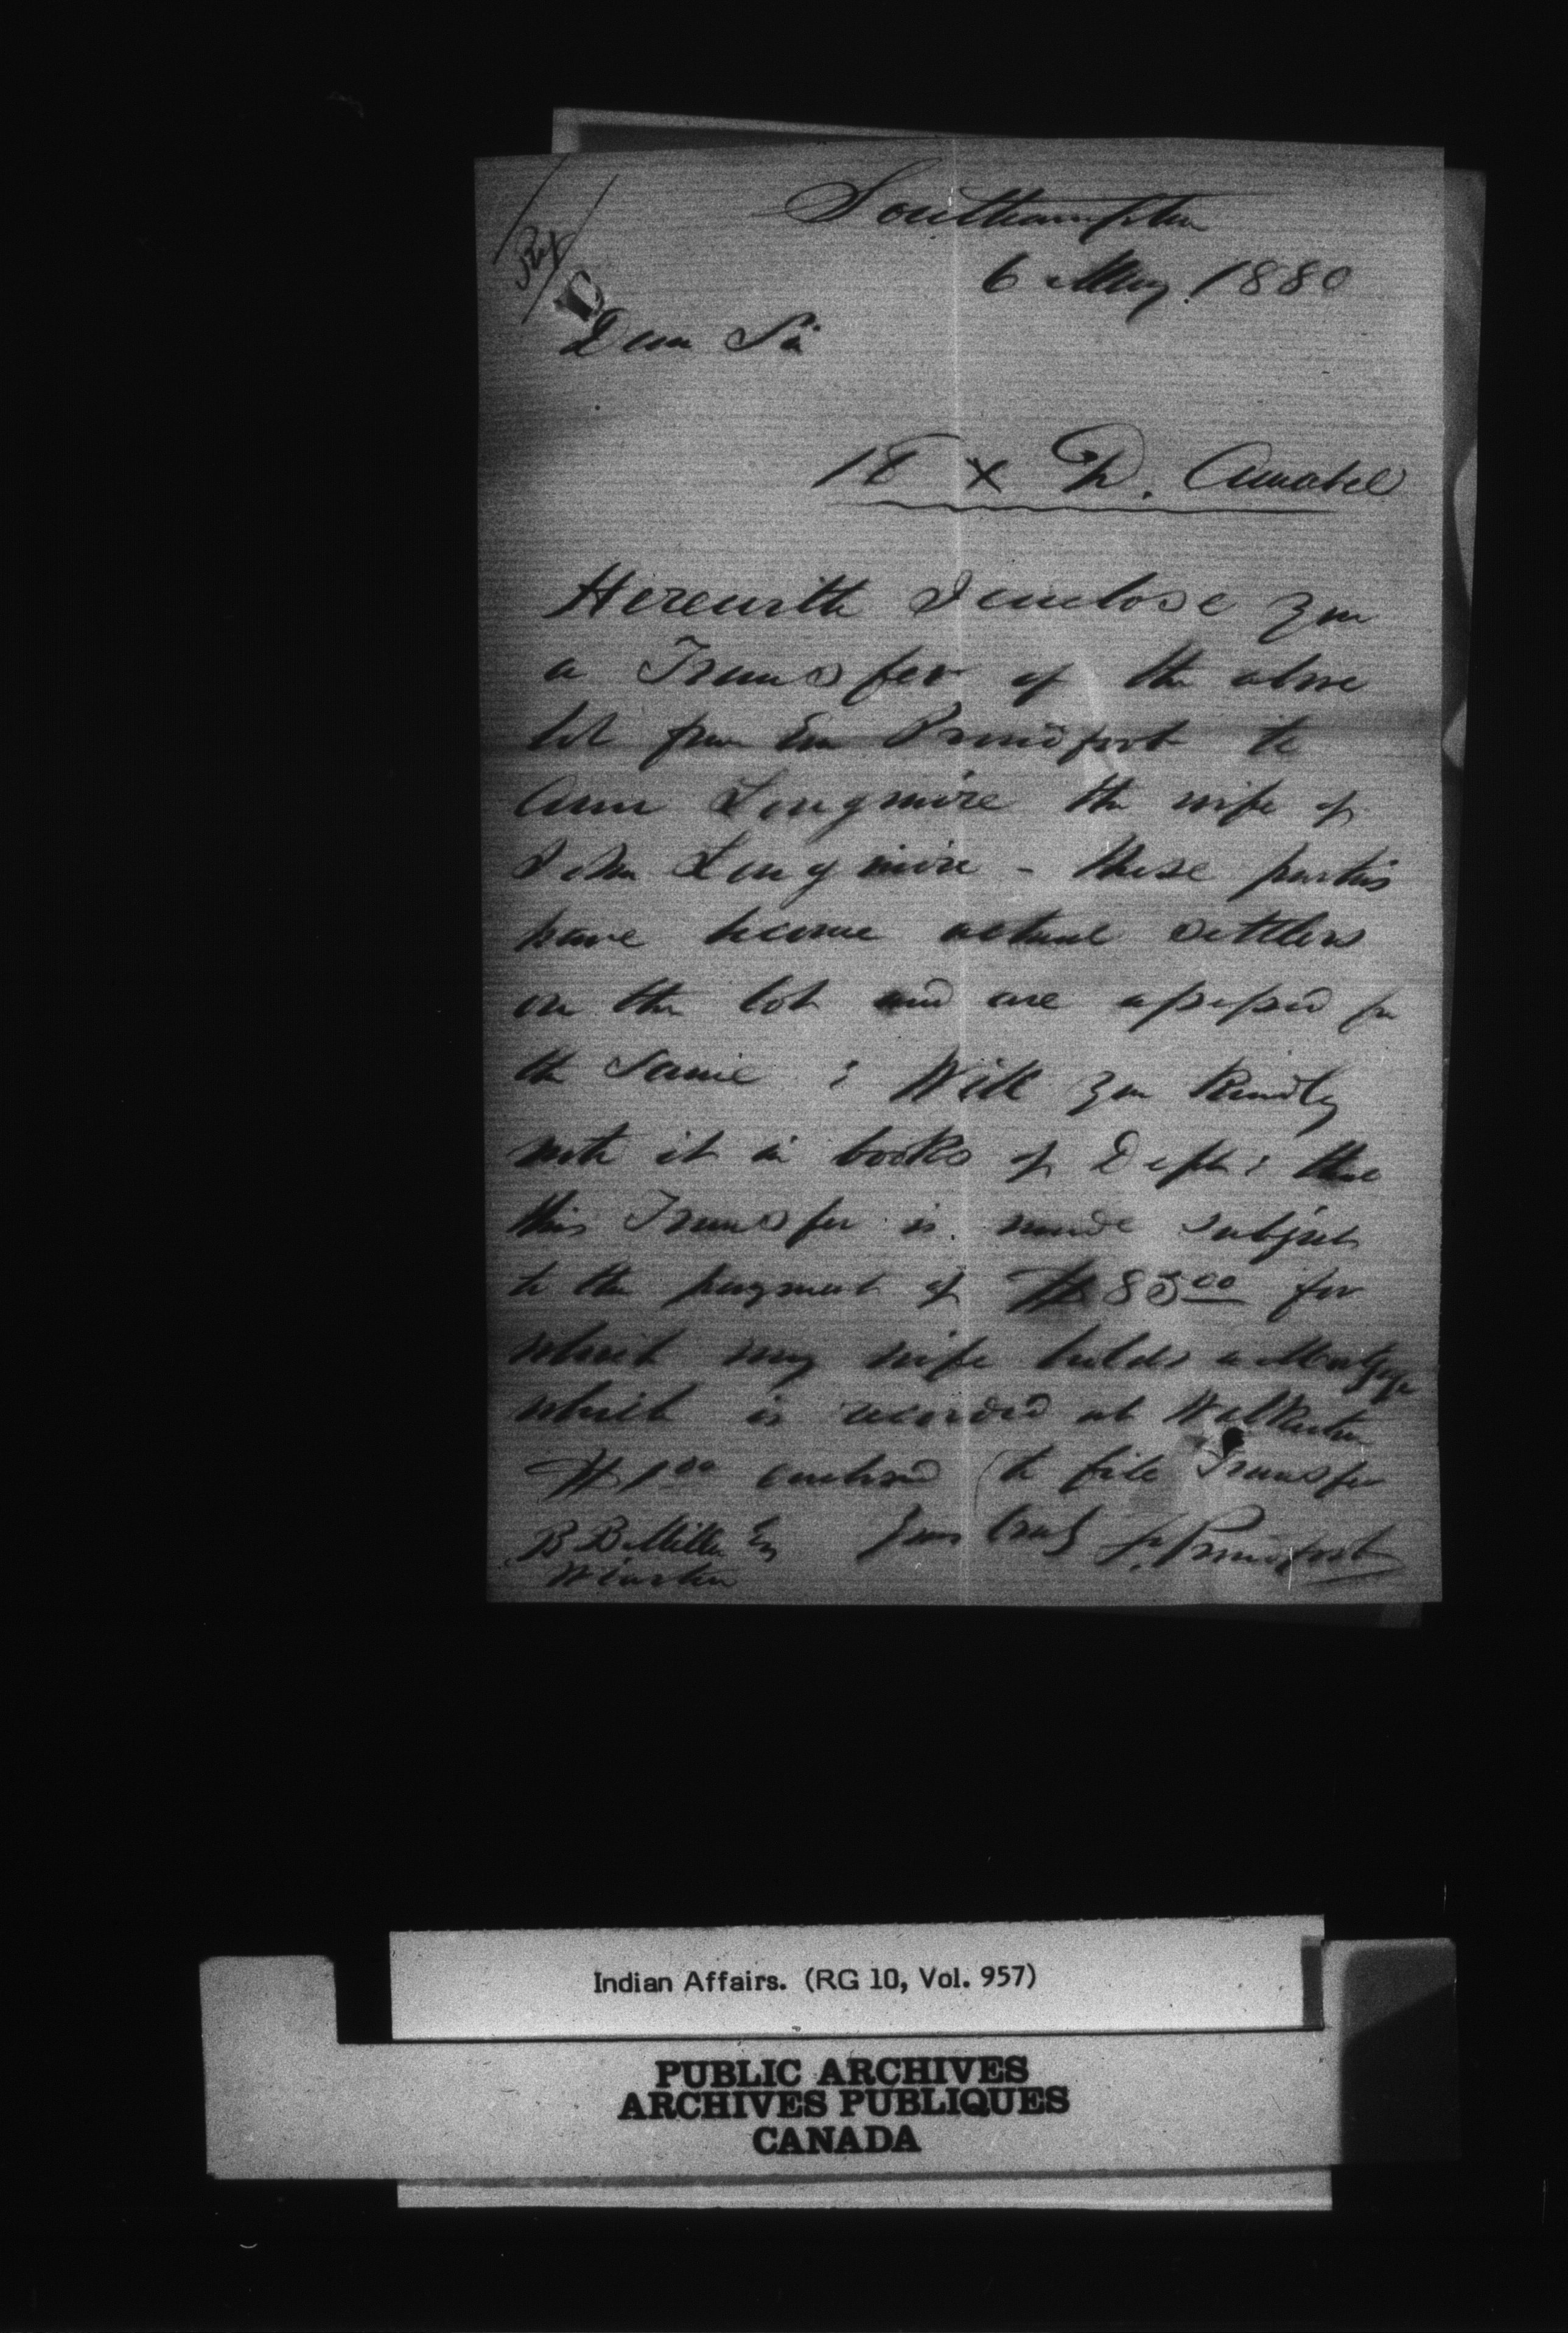 Southampton
6 May. 1880
Rex
Dear Sir
18 X D. Amabel
Herewith I enclose you
a Transfer of the above
lot from Em Proudfoot to
Ann Longmire the wife of
John Longmire - these parties
have become actual settlers
on the lot and are assessed for
the Same : Will you kindly
note it in books of Dept: that
this Transfer is made subject
to the payment of $85.00 for
which my wife holds a Mortgage
which is recorded at Walkerton
$1.00 enclosed to file Transfer
B B Miller Esq Yours truly Proudfoot
Wiarton
Indian Affairs. (RG 10, Vol. 957)
PUBLIC ARCHIVES
ARCHIVES PUBLIQUES
CANADA